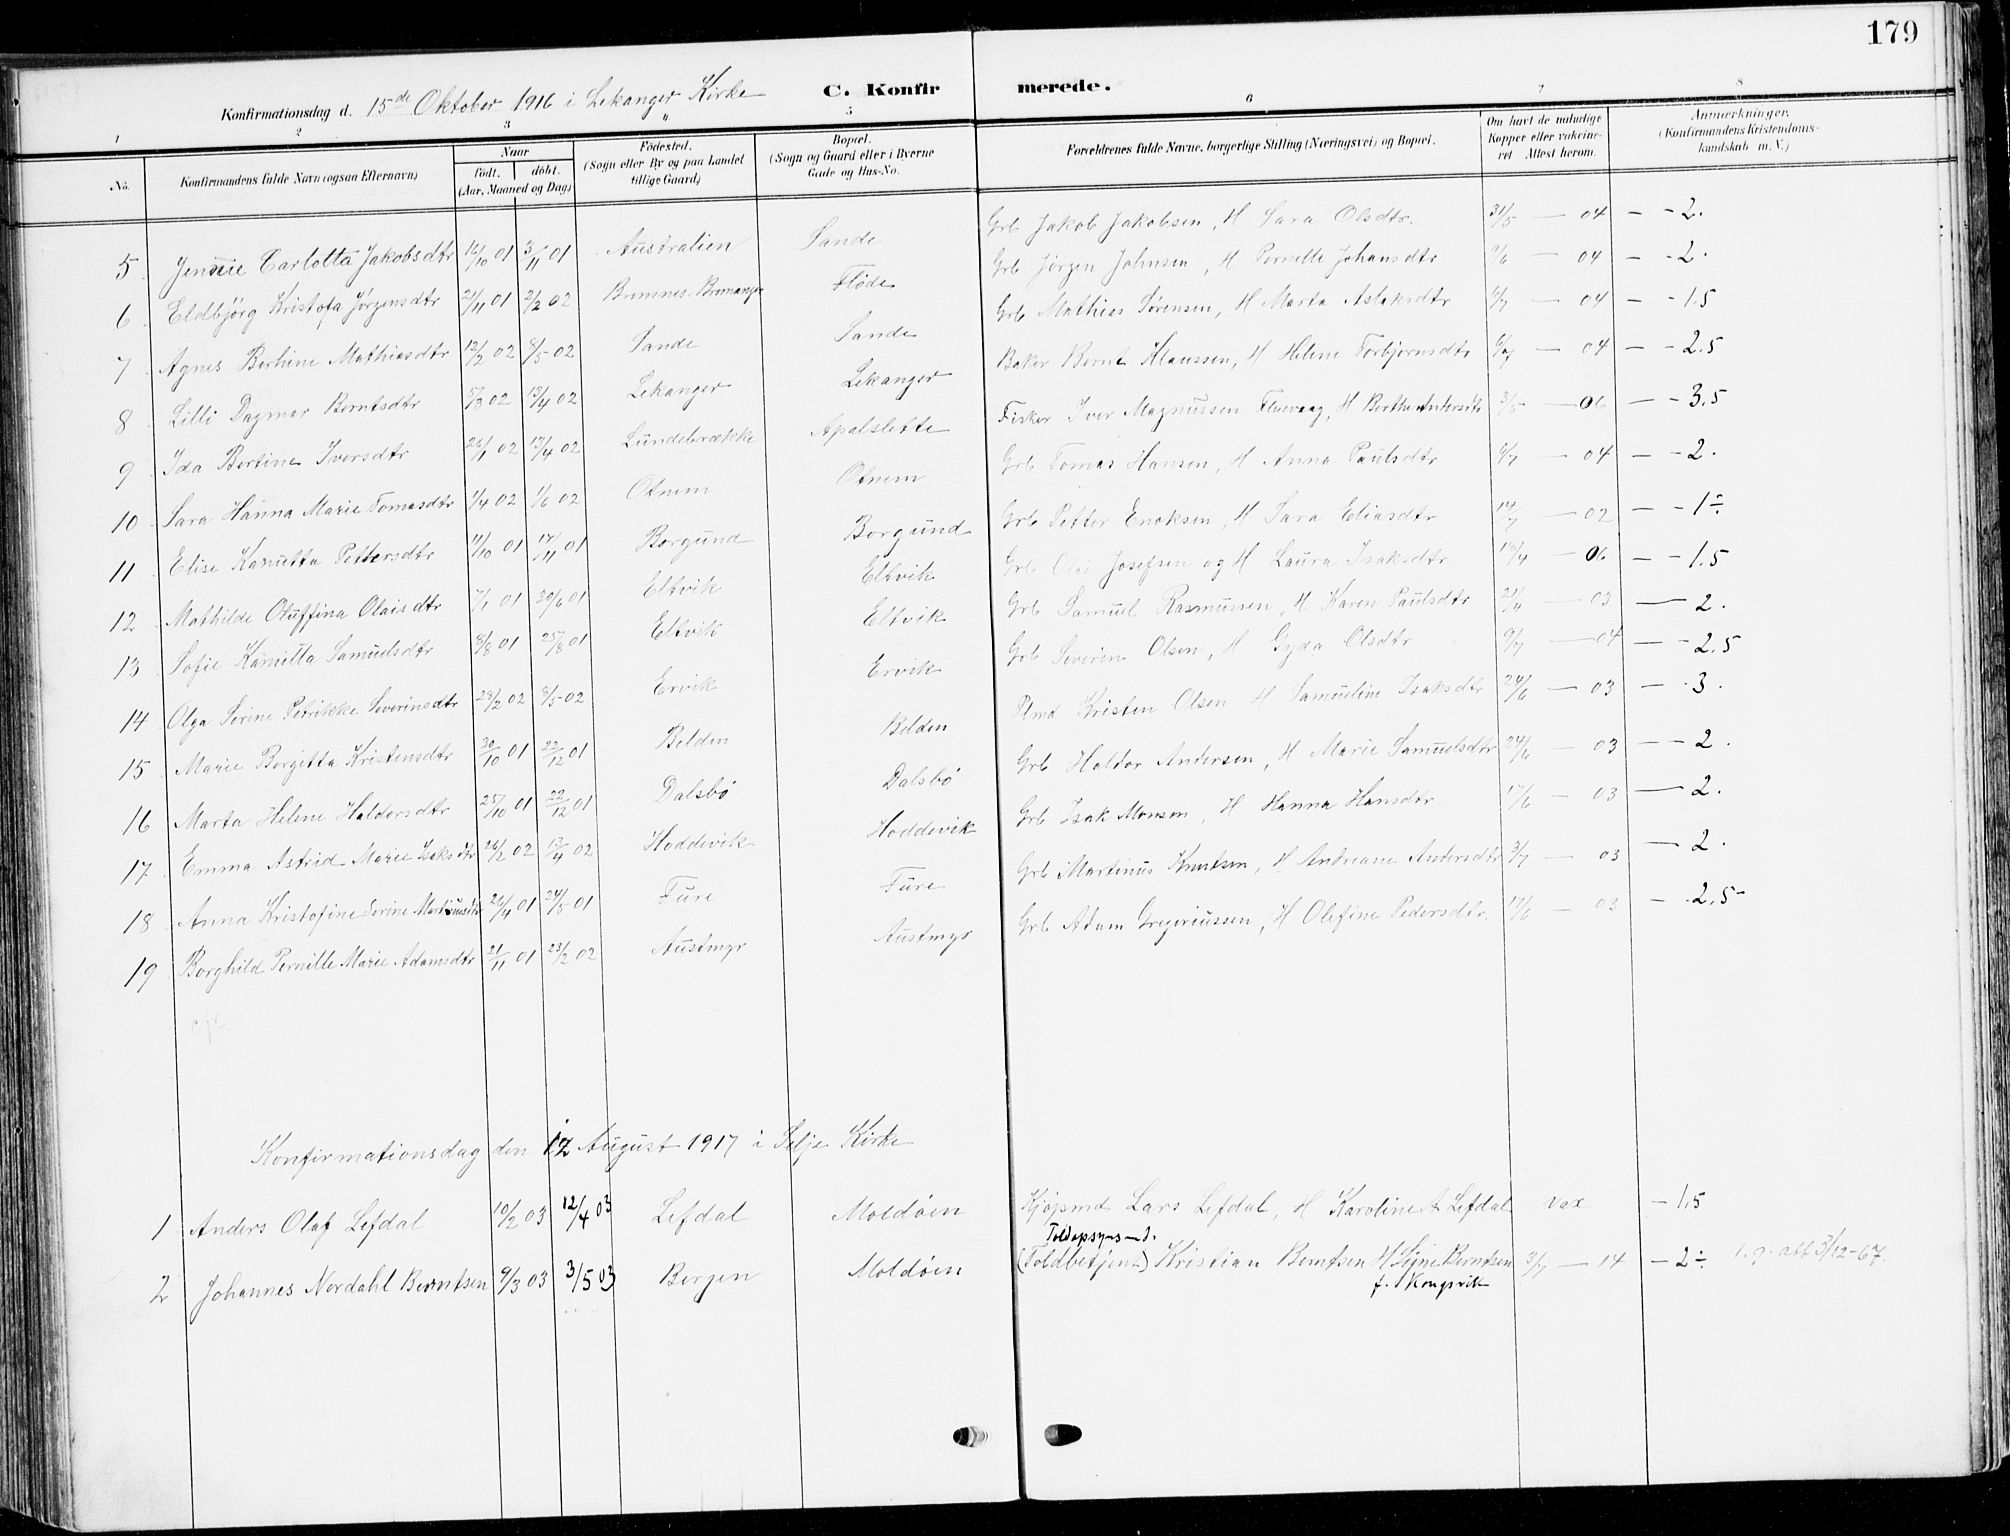 179
Konfirmationsdag d. 15de Oktober 1916 i Lekanger Kirke C. Konfirmerede.
1 2 3 4 5 6 7 8
No. Konfirmandens fulde Navn (ogsaa Efternavn) Naar født. døbt. (Aar, Maaned og Dag) Fødested. (Sogn eller By og paa Landet tillige Gaard) Bopæl. (Sogn og Gaard eller i Byerne Gade og Hus-No. Forældrenes fulde Navne, borgerlige Stilling (Næringsvei) og Bopæl. Om havt de naturlige Kopper eller vakcineret Attest herom. Anmærkninger. (Konfirmandens Kristendomskundskab m. V.)
5 Jennie Carlotta Jakobsdtr 16/10 01 3/11 01 Australien Sande Grb Jakob Jakobsen, H Sara Olsdtr. 31/5 — 04 — - 2.
6 Eldbjörg Kristofa Jørgensdtr 21/11 01 2/2 02 Bremnes-Bremanger Fløde Grb Jørgen Johnsen, H Pernille Johansdtr 9/6 — 04 — - 2.
7 Agnes Berhine Mathiasdtr 12/2 02 8/5 02 Sande Sande Grb Mathias Sørensen, H Marta Aslaksdtr 6/7 — 04 — - 1.5
8 Lilli Dagmar Berntsdtr 5/3 02 13/4 02 Lekanger Lekanger Baker Bernt Klaussen, H Helene Torbjørnsdtr 6/7 — 04 — - 2.5
9 Ida Bertine Iversdtr 26/1 02 13/4 02 Lundebrække Apalslette Fisker Iver Magnussen, H Berthe Andersdtr 3/5 — 06 — - 3.5
10 Sara Hanna Marie Tomasdtr 1/4 02 1/6 02 Otnem Otnem Grb Tomas Hansen, H Anna Paulsdtr 6/7 — 04 — - 2.
11 Elise Kanutta Pettersdtr 11/10 01 17/11 01 Borgund Borgund Grb Petter Enoksen, H Sara Eliasdtr 14/7 — 02 — - 1÷
12 Mathilde Oluffina Olaisdtr 7/1 01 30/6 01 Eltvik Eltvik Grb Olai Josefsen og H Laura Isaksdtr 18/4 — 06 — - 1.5
13 Sofie Kanutta Samuelsdtr 8/8 01 25/8 01 Eltvik Eltvik Grb Samuel Rasmussen, H Karen Paulsdtr 21/4 — 03 — 2.
14 Olga Serine Petrikke Severinsdtr 28/2 02 8/5 02 Ervik Ervik Grb Severin Olsen, H Gyda Olsdtr 9/7 — 04 — - 2.5
15 Marie Borgitta Kristensdtr 30/10 01 22/12 01 Belden Belden Plmd Kristen Olsen H Samueline Isaksdtr 24/6 — 03 — - 3.
16 Marta Helene Haldorsdtr 25/10 01 22/12 01 Dalsbø Dalsbø Grb Haldor Andersen, H Marie Samuelsdtr 24/6 — 03 — 2.
17 Emma Astrid Marie Isaksdtr 26/2 02 13/4 02 Hoddevik Hoddevik Grb Isak Monsen, H Hanna Hansdtr 17/6 — 03 — 2.
18 Anna Kristofine Serine Martinusdtr 26/4 01 24/5 01 Fure Fure Grb Martinus Knutsen, H Andreane Andersdtr 3/7 — 03 — 2.
19 Borghild Pernille Marie Adamsdtr 21/11 01 23/2 02 Austmyr Austmyr Grb Adam Gregoriussen, H Olefine Pedersdtr. 17/6 — 03 — - 2.5-
Konfirmationsdag den 12 August 1917 i Selje Kirke
1 Anders Olaf Lefdal 10/2 03 12/4 03 Lefdal Moldøen Kjøpmd Lars Lefdal, H Karoline A Lefdal vax — 1.5
Toldopsynsmd.
2 Johannes Nordahl Berntsen 9/3 03 3/5 03 Bergen Moldøen (Toldbetjent) Kristian Berntsen H Signe Berntsen 3/7 — 14 — 2÷ 1.g. att 3/12-67.
f. Kongsvik